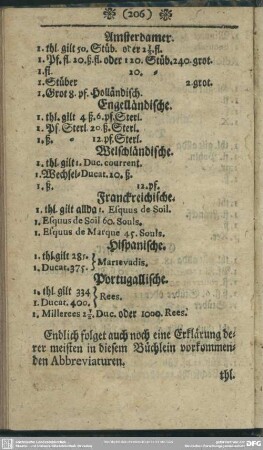 (206)
Amsterdamer.
1. thl. gilt 50. Stüb. oder 2½.fl.
1. Pf. fl. 20.ß.fl. oder 120. Stüb. 240. grot.
1. fl. 20. "
1. Stüber 2. grot.
1. Grot 8. pf. Holländisch.
Engelländische.
1. thl. gilt 4 ß.6.pf.Sterl.
1. Pf. Sterl. 20.ß.Sterl.
1.ß. " 12.pf.Sterl.
Welschländische.
1. thl. gilt 1. Duc. courrent.
1. Wechsel-Ducat. 10. ß.
1. ß. 12.pf.
Franckreichische.
1. thl. gilt allda 1. Esquus de Soil.
1. Esquus de Soil 60. Souls.
1. Esquus de Marque 45. Souls.
Hispanische.
1. thl. gilt 281. } Marevadis.
1. Ducat. 375.
Portugallische.
1. thl. gilt 334 } Rees.
1. Ducat. 400.
1. Millerees 2½. Duc. oder 1000. Rees.
Endlich folget auch noch eine Erklärung de-
rer meisten in diesem Büchlein vorkommen-
den Abbreviaturen.
thl.